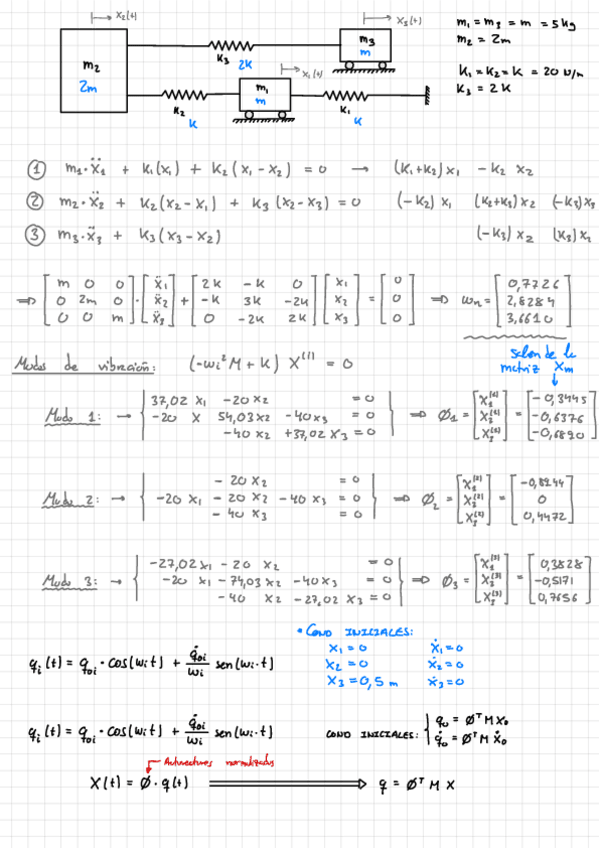 x₂(t)
x₃(t)
m₁ = m₃ = m = 5 kg
m₂ = 2m
K₁ = K₂ = K = 20 N/m
K₃ = 2K
m₂
2m
K₃
2K
m₃
m
x₁(t)
m₁
m
K₂
K
K₁
K
① m₁·ẍ₁ + K₁(x₁) + K₂(x₁ - x₂) = 0 → (K₁+K₂)x₁ - K₂ x₂
② m₂·ẍ₂ + K₂(x₂-x₁) + K₃(x₂-x₃) = 0 (-K₂)x₁ (K₂+K₃)x₂ (-K₃)x₃
③ m₃·ẍ₃ + K₃(x₃-x₂) (-K₃)x₂ (K₃)x₃
⇒ [m 0 0; 0 2m 0; 0 0 m]·[ẍ₁; ẍ₂; ẍ₃] + [2K -K 0; -K 3K -2K; 0 -2K 2K][x₁; x₂; x₃] = [0; 0; 0] ⇒ ωn = [0,7726; 2,8284; 3,6610]
Modos de vibración: (-ωi² M + K) X⁽ⁱ⁾ = 0
según de la
matriz Xm
Modo 1: → { 37,02 x₁ -20 x₂ = 0
-20 X 54,03 x₂ -40 x₃ = 0
-40 x₂ +37,02 x₃ = 0 } ⇒ Ø₁ = [-0,3445; -0,6376; -0,6890]
Modo 2: → { -20 x₂ = 0
-20 x₁ -20 x₂ -40 x₃ = 0
-40 x₃ = 0 } ⇒ Ø₂ = [-0,8944; 0; 0,4472]
Modo 3: → { -27,02 x₁ -20 x₂ = 0
-20 x₁ -74,03 x₂ -40 x₃ = 0
-40 x₂ -27,02 x₃ = 0 } ⇒ Ø₃ = [0,3828; -0,5171; 0,7656]
• COND INICIALES:
x₁ = 0 ẋ₁ = 0
x₂ = 0 ẋ₂ = 0
x₃ = 0,5 m ẋ₃ = 0
qi(t) = q₀i · cos(ωi t) + q̇₀i/ωi sen(ωi·t)
qi(t) = q₀i · cos(ωi t) + q̇₀i/ωi sen(ωi·t) COND INICIALES: { q₀ = Øᵀ M X₀
q̇₀ = Øᵀ M Ẋ₀
Autovectores normalizados
X(t) = Ø · q(t) ⇒ q = Øᵀ M X